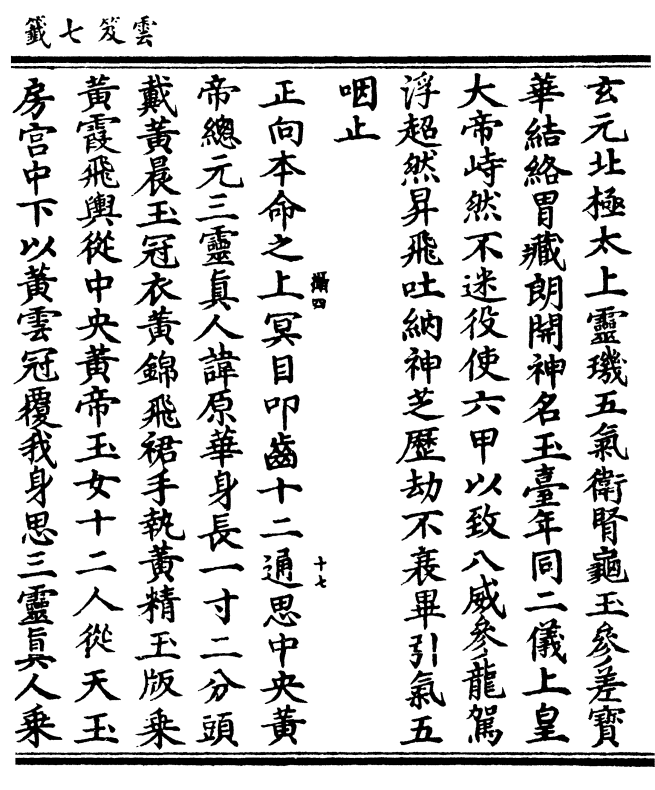 雲笈七籤
玄元北極太上靈璣五氣衛腎龜玉參差寶
華結絡胃藏朗開神名玉臺年同二儀上皇
大帝峙然不迷役使六甲以致八威參龍駕
浮超然昇飛吐納神芝歷劫不衰畢引氣五
咽止
攝四
十七
正向本命之上冥目叩齒十二通思中央黃
帝總元三靈真人諱原華身長一寸二分頭
戴黃晨玉冠衣黃錦飛裙手執黃精玉版乘
黃霞飛輿從中央黃帝玉女十二人從天玉
房宮中下以黃雲冠覆我身思三靈真人乘